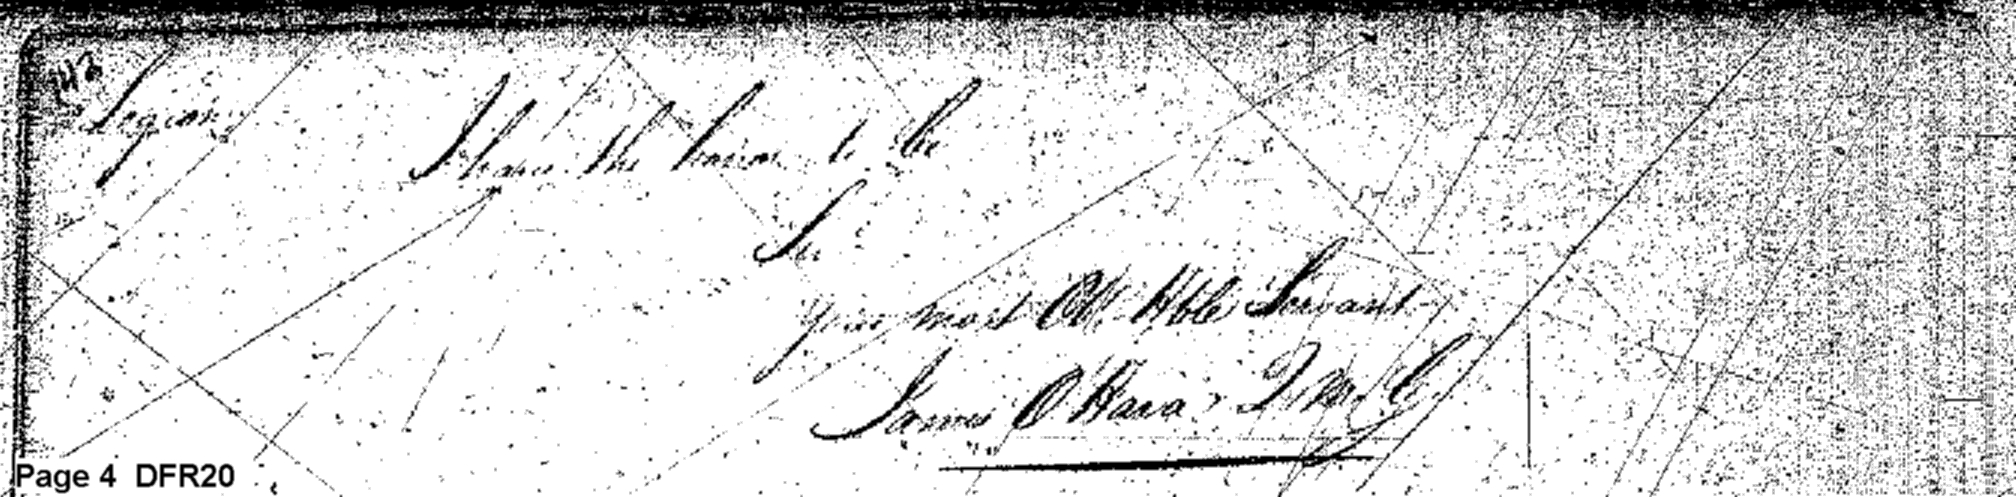 142
Legion
I have the honor to be
Sir
Your most Obt. Hble Servant
James O'Hara Q.M.G.
Page 4 DFR20